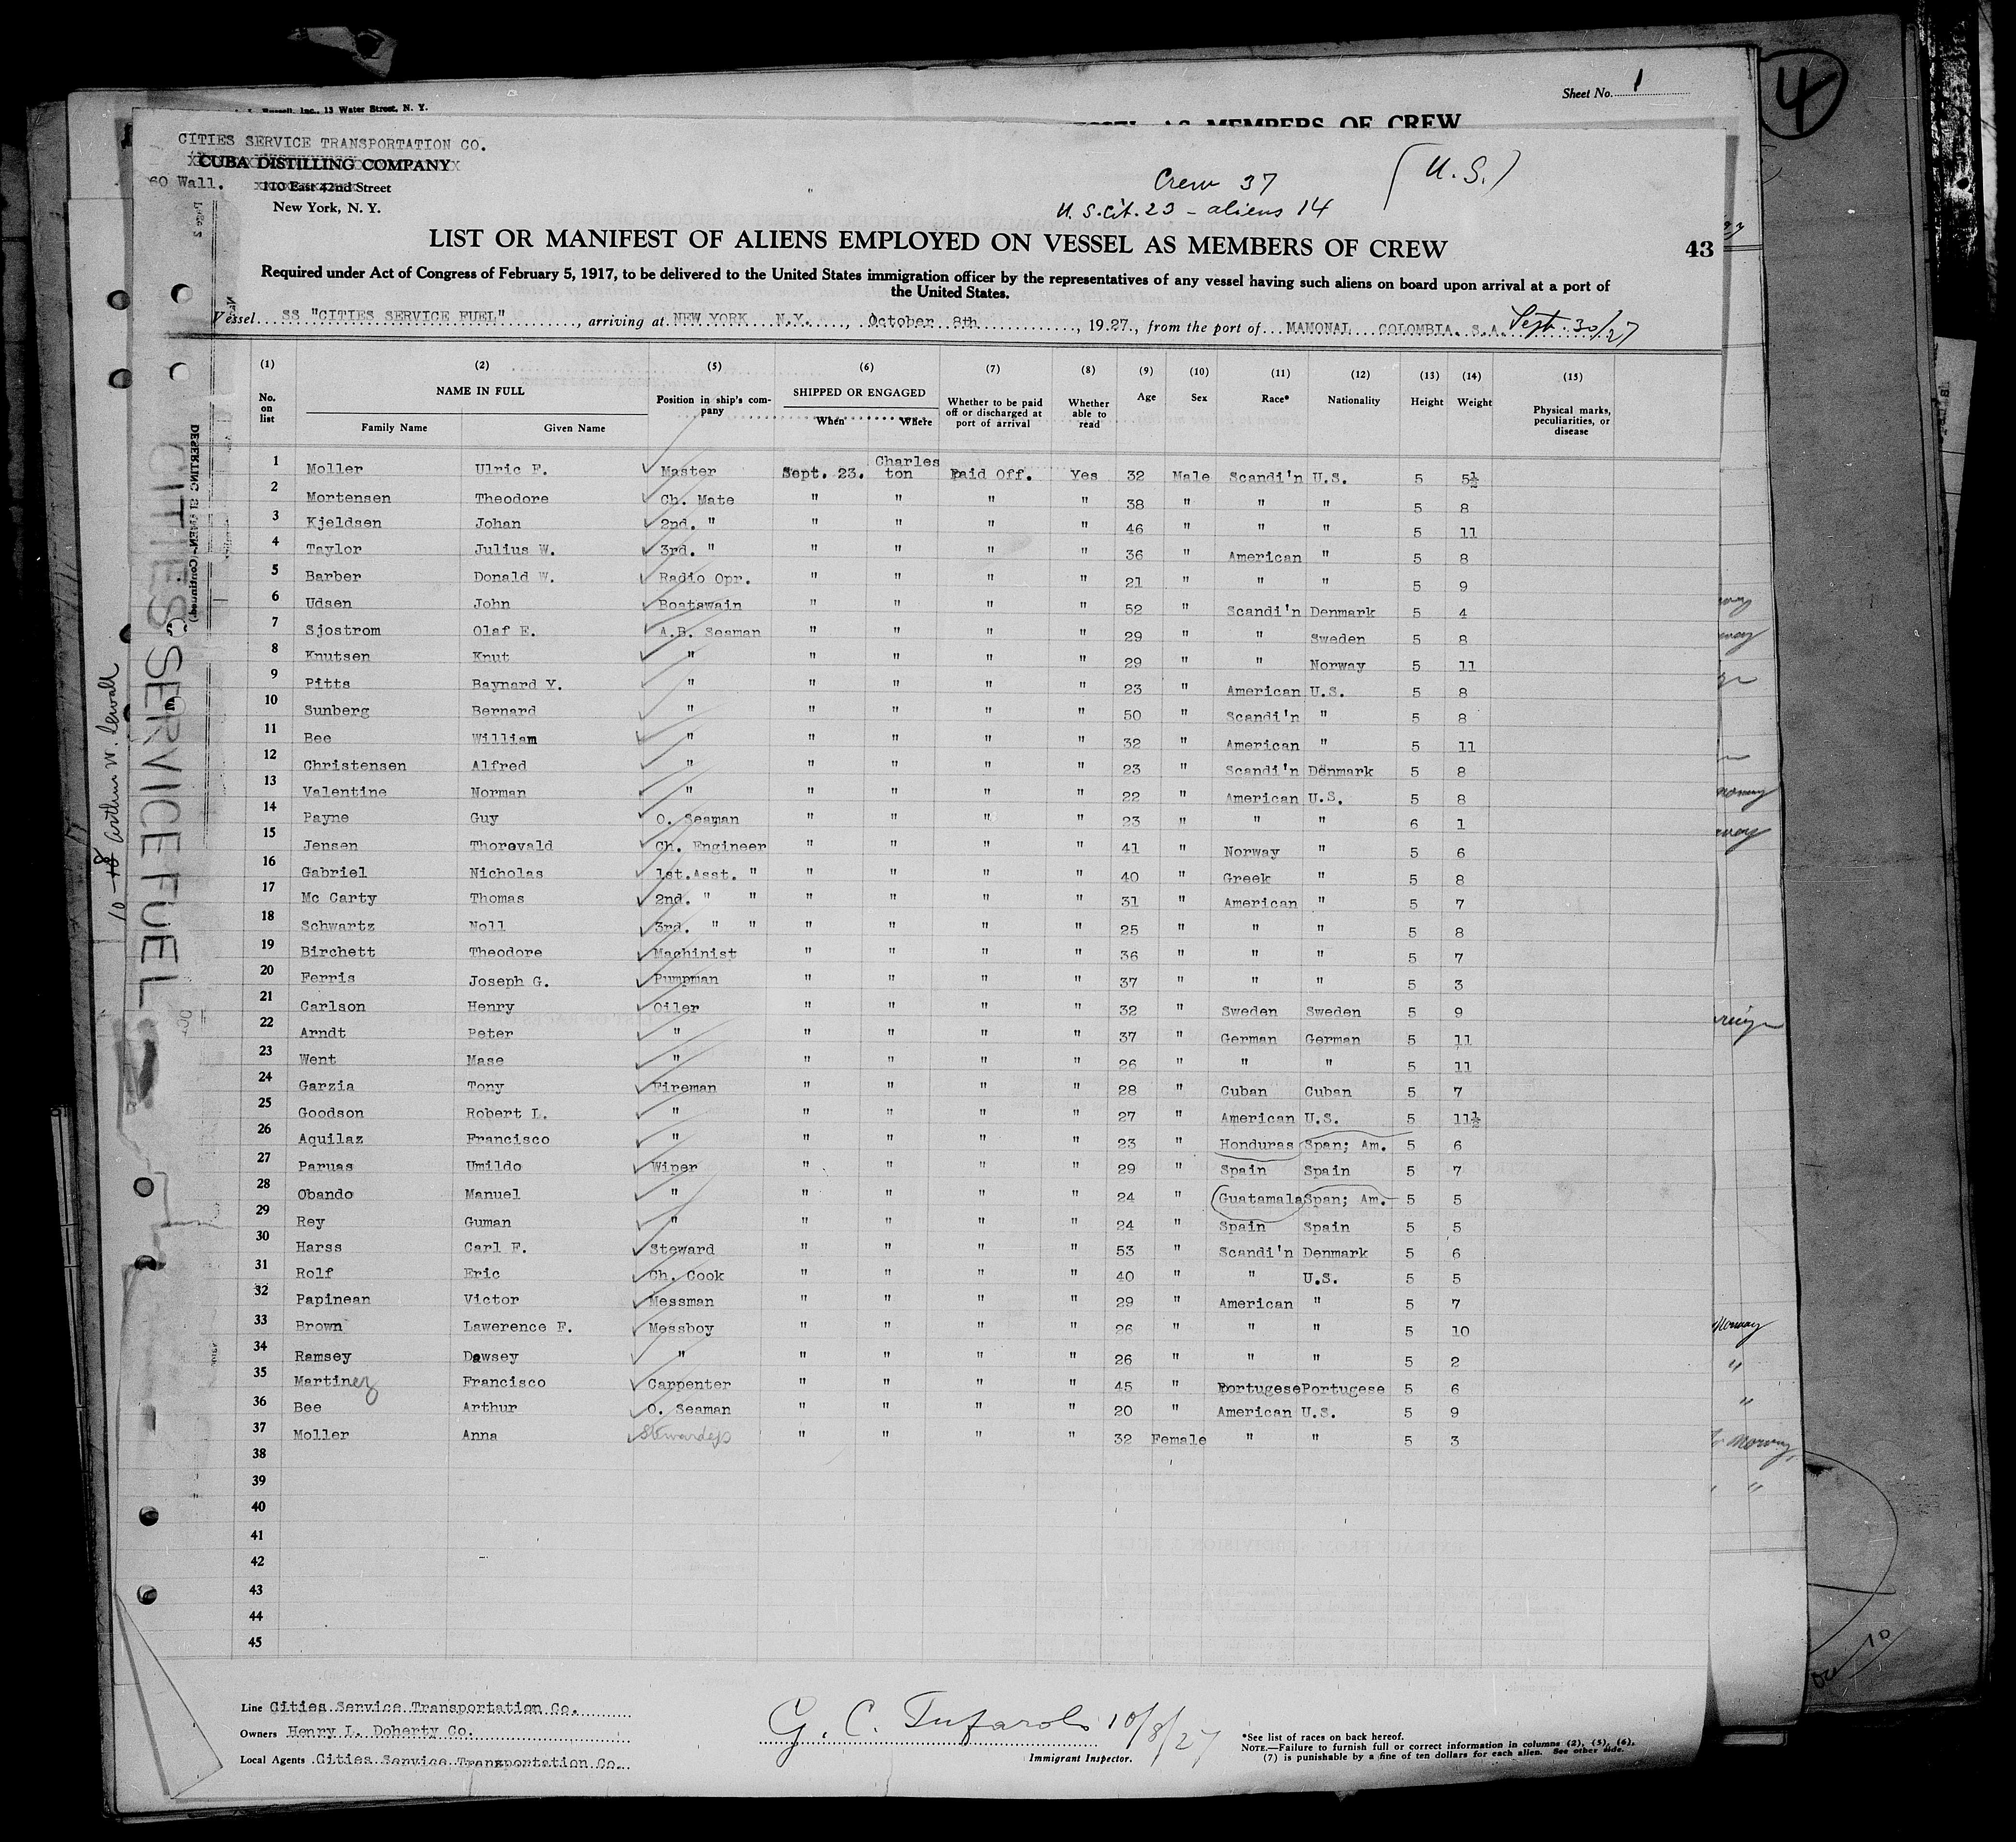 Sheet No. 1
4
Russell, Inc., 13 Water Street, N. Y.
AS MEMBERS OF CREW
CITIES SERVICE TRANSPORTATION CO.
CUBA DISTILLING COMPANY
60 Wall. 110 East 42nd Street
New York, N. Y.
Crew 37
(U.S.)
U.S. Cit. 23 - aliens 14
LIST OR MANIFEST OF ALIENS EMPLOYED ON VESSEL AS MEMBERS OF CREW 43
Required under Act of Congress of February 5, 1917, to be delivered to the United States immigration officer by the representatives of any vessel having such aliens on board upon arrival at a port of
the United States.
Vessel SS "CITIES SERVICE FUEL", arriving at NEW YORK N.Y., October 8th, 1927, from the port of MAMONAL COLOMBIA. S.A. Sept. 30/27
(1) (2) (5) (6) (7) (8) (9) (10) (11) (12) (13) (14) (15)
No. on list NAME IN FULL Family Name Given Name Position in ship's company SHIPPED OR ENGAGED When Where Whether to be paid off or discharged at port of arrival Whether able to read Age Sex Race* Nationality Height Weight Physical marks, peculiarities, or disease
1 Moller Ulric F. Master Sept. 23. Charleston Paid Off. Yes 32 Male Scandi'n U.S. 5 5½
2 Mortensen Theodore Ch. Mate " " " " 38 " " " 5 8
3 Kjeldsen Johan 2nd. " " " " " 46 " " " 5 11
4 Taylor Julius W. 3rd. " " " " " 36 " American " 5 8
5 Barber Donald W. Radio Opr. " " " " 21 " " " 5 9
6 Udsen John Boatswain " " " " 52 " Scandi'n Denmark 5 4
7 Sjostrom Olaf E. A.B. Seaman " " " " 29 " " Sweden 5 8
8 Knutsen Knut " " " " " 29 " " Norway 5 11
9 Pitts Baynard Y. " " " " " 23 " American U.S. 5 8
10 Sunberg Bernard " " " " " 50 " Scandi'n " 5 8
11 Bee William " " " " " 32 " American " 5 11
12 Christensen Alfred " " " " " 23 " Scandi'n Denmark 5 8
13 Valentine Norman " " " " " 22 " American U.S. 5 8
14 Payne Guy O. Seaman " " " " 23 " " " 6 1
15 Jensen Thorevald Ch. Engineer " " " " 41 " Norway " 5 6
16 Gabriel Nicholas 1st.Asst. " " " " " 40 " Greek " 5 8
17 Mc Carty Thomas 2nd. " " " " " " 31 " American " 5 7
18 Schwartz Noll 3rd. " " " " " " 25 " " " 5 8
19 Birchett Theodore Machinist " " " " 36 " " " 5 7
20 Ferris Joseph G. Pumpman " " " " 37 " " " 5 3
21 Carlson Henry Oiler " " " " 32 " Sweden Sweden 5 9
22 Arndt Peter " " " " " 37 " German German 5 11
23 Went Mase " " " " " 26 " " " 5 11
24 Garzia Tony Fireman " " " " 28 " Cuban Cuban 5 7
25 Goodson Robert L. " " " " " 27 " American U.S. 5 11½
26 Aquilaz Francisco " " " " " 23 " Honduras Span; Am. 5 6
27 Paruas Umildo Wiper " " " " 29 " Spain Spain 5 7
28 Obando Manuel " " " " " 24 " Guatamala Span; Am. 5 5
29 Rey Guman " " " " " 24 " Spain Spain 5 5
30 Harss Carl F. Steward " " " " 53 " Scandi'n Denmark 5 6
31 Rolf Eric Ch. Cook " " " " 40 " " U.S. 5 5
32 Papinean Victor Messman " " " " 29 " American " 5 7
33 Brown Lawerence F. Messboy " " " " 26 " " " 5 10
34 Ramsey Dawsey " " " " " 26 " " " 5 2
35 Martinez Francisco Carpenter " " " " 45 " Portugese Portugese 5 6
36 Bee Arthur O. Seaman " " " " 20 " American U.S. 5 9
37 Moller Anna Stewardess " " " " 32 Female " " 5 3
38
39
40
41
42
43
44
45
Line Cities Service Transportation Co.
Owners Henry L. Doherty Co.
Local Agents Cities Service Transportation Co.
G. C. Tufarolo 10/8/27
Immigrant Inspector.
*See list of races on back hereof.
NOTE.—Failure to furnish full or correct information in columns (2), (5), (6),
(7) is punishable by a fine of ten dollars for each alien. See other side.
CITIES SERVICE FUEL
DESERTING SEAMEN—(Continued)
Norway
10